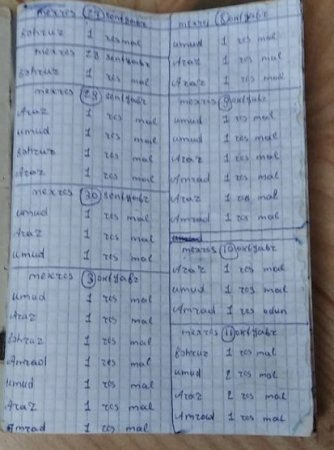 mexres 27 sentyabr
Bəhruz 1 res mal
mexres 28 sentyabr
Bəhruz 1 res mal
mexres 29 sentyabr
Araz 1 res mal
umud 1 res mal
Bəhruz 1 res mal
Araz 1 res mal
mexres 30 sentyabr
umud 1 res mal
Araz 1 res mal
umud 1 res mal
mexres 3 oktyabr
umud 1 res mal
Araz 1 res mal
Bəhruz 1 res mal
Amrad 1 res mal
umud 1 res mal
Araz 1 res mal
Amrad 1 res mal
mexres oktyabr
umud 1 res mal
Araz 1 res mal
Araz 1 res mal
mexres 9 oktyabr
umud 1 res mal
umud 1 res mal
Araz 1 res mal
Amrad 1 res mal
Araz 1 res mal
Amrad 1 res mal
mexres 10 oktyabr
Araz 1 res mal
umud 1 res mal
Amrad 1 res odun
mexres 11 oktyabr
Bəhruz 1 res mal
umud 2 res mal
Araz 2 res mal
Amrad 1 res mal